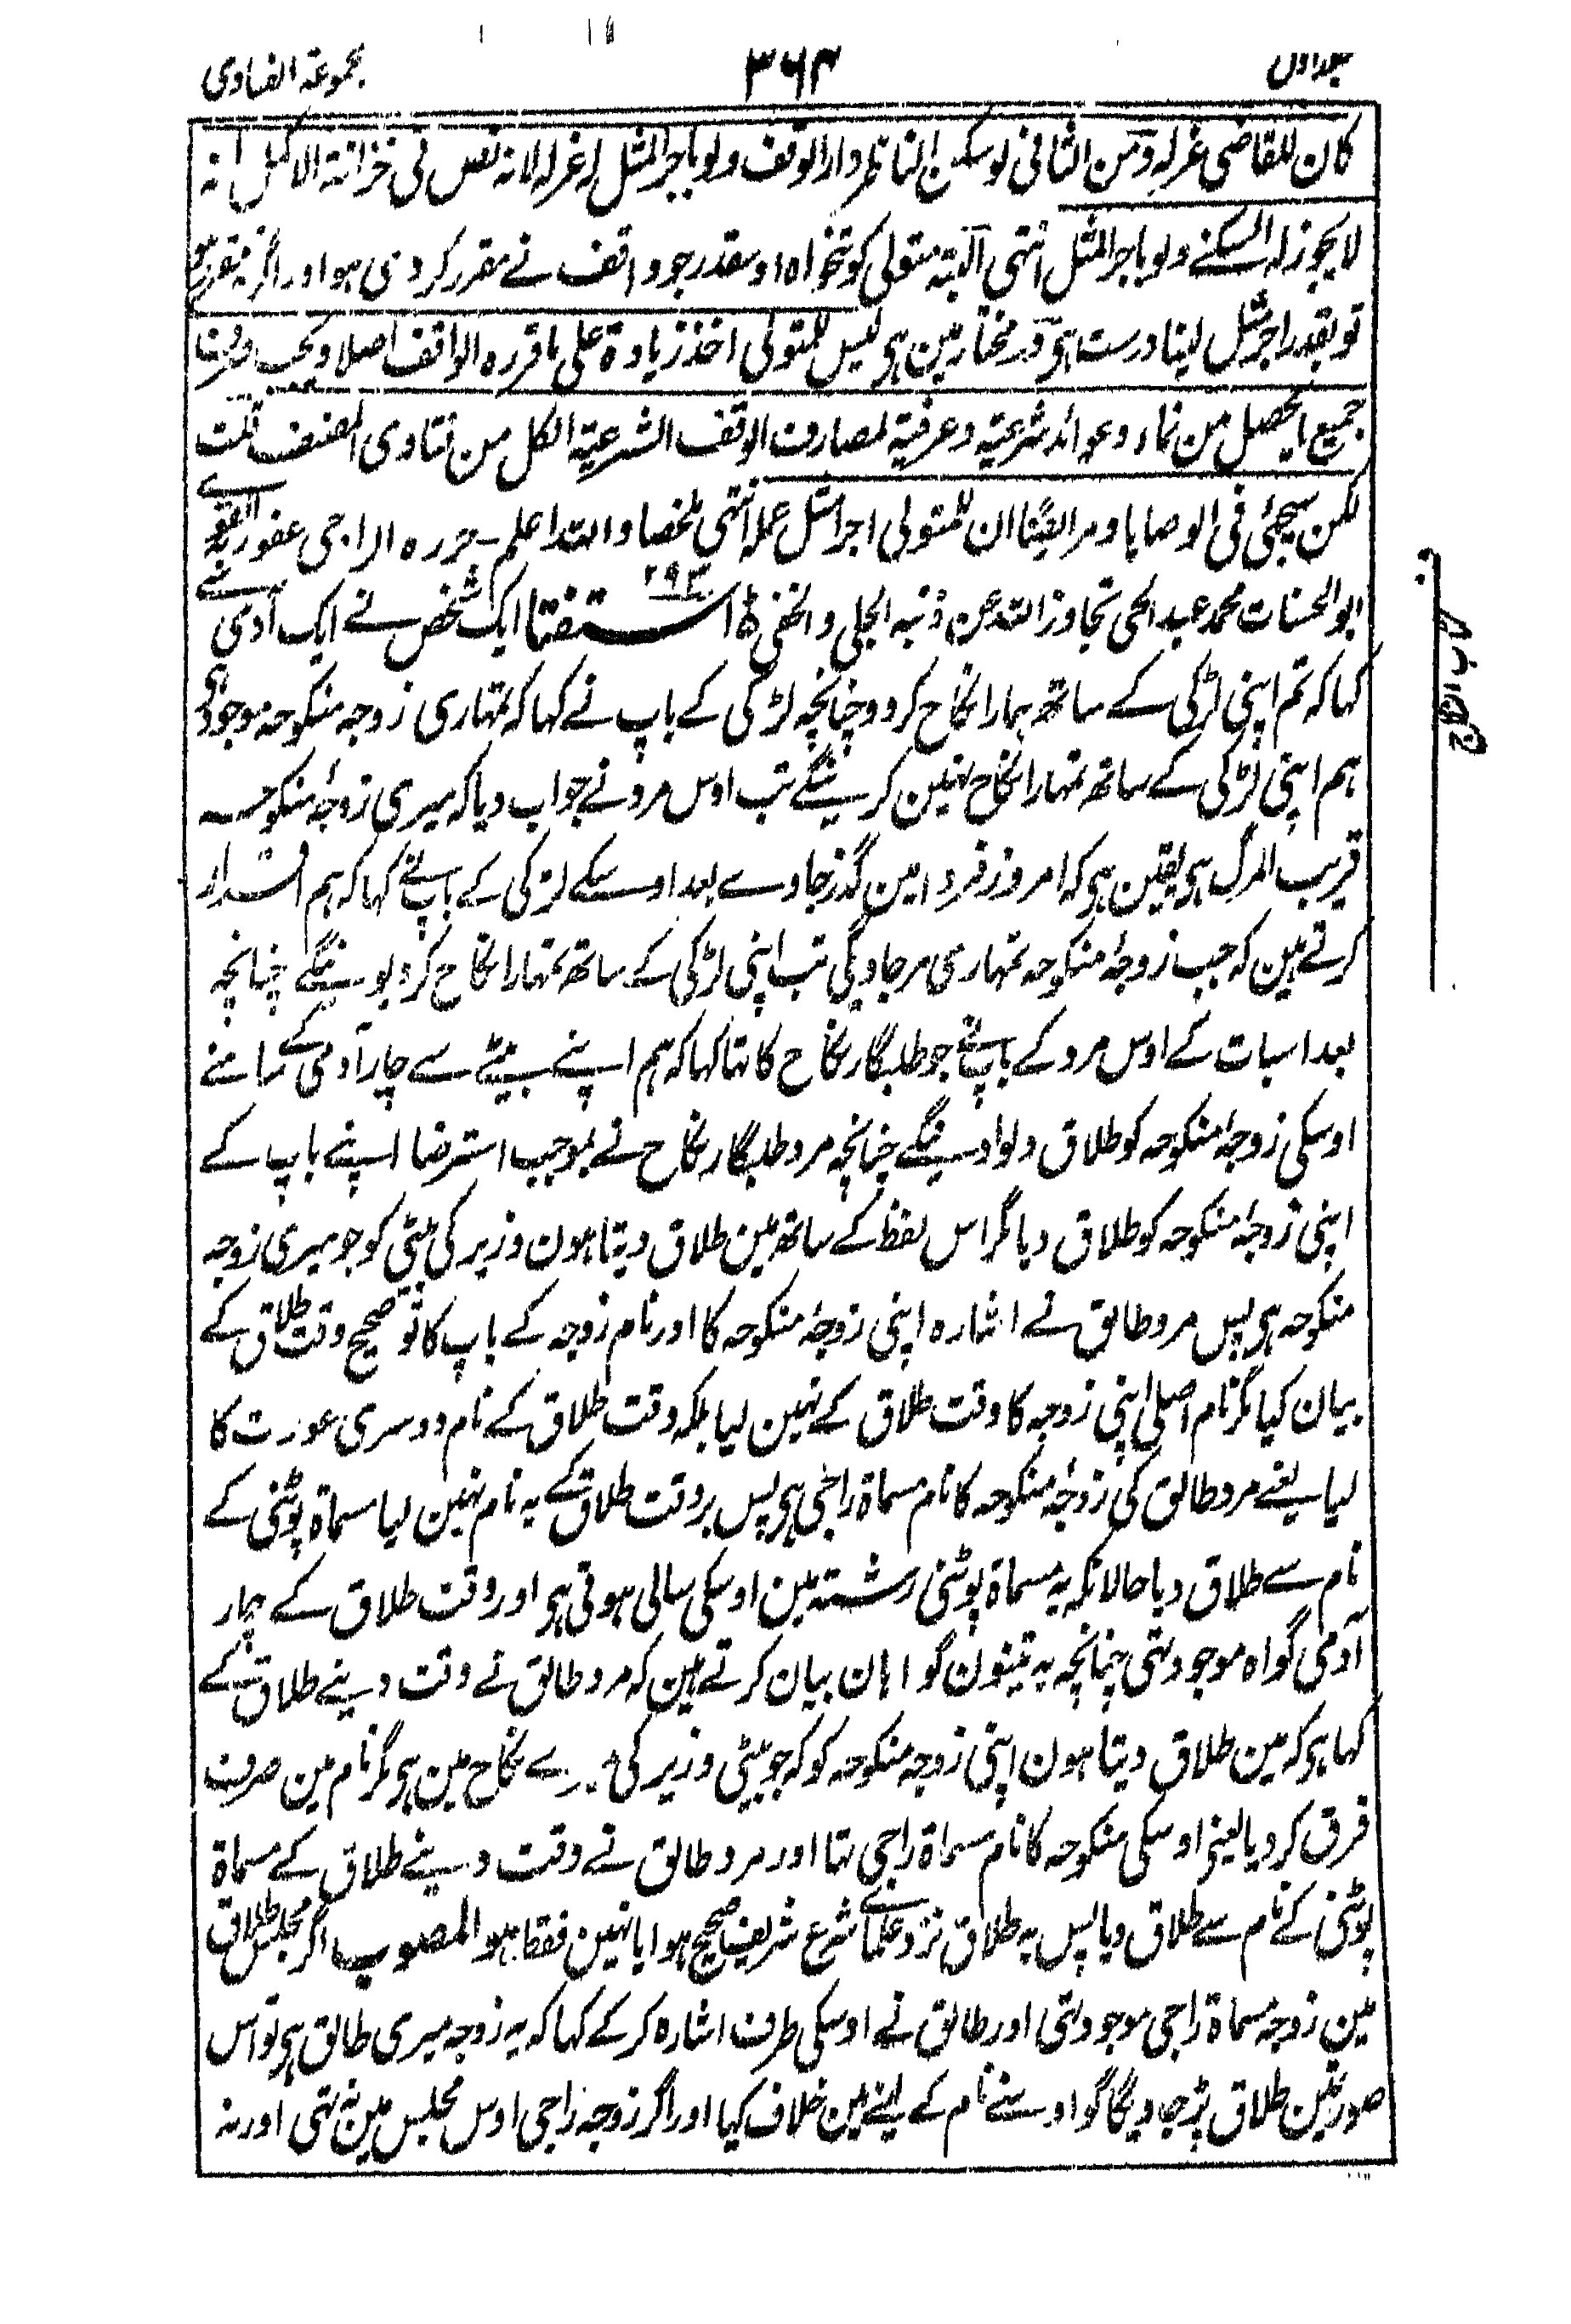 جلد اول ۳۶۴ مجموعۃ الفتاوی
کان للقاضی عزلہ ومن الثانی لو سکن الناظر دار الوقف ولو باجر المثل لہ عزلہ لانہ نص فی خزانۃ الاکمل انہ
لا یجوز لہ السکنے ولو باجر المثل انتہی البتہ متولی کو تنخواہ اوسقدر جو واقف نے مقرر کردی ہو اور اگر نہ مقرر کی
تو بقدر اجر مثل لینا درست ہی در مختار مین ہی لیس للمتولی اخذ زیادۃ علی ما قررہ الواقف اصلا ویجب صرف
جمیع ما یحصل من نماء وعوائد شرعیۃ وعرفیۃ لمصارف الوقف الشرعیۃ الکل من فتاوی المصنف قلت
لکن سیجئی فی الوصایا ومر ایضًا ان للمتولی اجر مثل عملہ انتہی ملخصا واللہ اعلم ۔ حررہ الراجی عفو ربہ القوی
ابو الحسنات محمد عبد الحی تجاوز اللہ عن ذنبہ الجلی والخفی ۲۹۳ استفتا ایک شخص نے ایک آدمی سے
کہا کہ تم اپنی لڑکی کے ساتھ ہمارا نکاح کردو چنانچہ لڑکی کے باپ نے کہا کہ تمہاری زوجہ منکوحہ موجود ہی
ہم اپنی لڑکی کے ساتھ تمہارا نکاح نہین کرینگے تب اوس مرد نے جواب دیا کہ میری زوجۂ منکوحہ
قریب المرگ ہی یقین ہی کہ امروز فردا مین گذر جاوے بعد اوسکے لڑکی کے باپ نے کہا کہ ہم اقرار
کرتے ہین کہ جب زوجۂ منکوحہ تمہاری مرجاویگی تب اپنی لڑکی کے ساتھ تمہارا نکاح کردیوینگے چنانچہ
بعد اسبات کے اوس مرد کے باپ نے جو طلبگار نکاح کا تہا کہا کہ ہم اپنے بیٹے سے چار آدمی کے سامنے
اوسکی زوجۂ منکوحہ کو طلاق دلوادینگے چنانچہ مرد طلبگار نکاح نے بموجب استرضا اپنے باپ کے
اپنی زوجۂ منکوحہ کو طلاق دیا مگر اس لفظ کے ساتھ مین طلاق دیتا ہون وزیر کی بیٹی کو جو میری زوجہ
منکوحہ ہی پس مرد طالق نے اشارہ اپنی زوجۂ منکوحہ کا اور نام زوجہ کے باپ کا تو صحیح وقت طلاق کے
بیان کیا مگر نام اصلی اپنی زوجہ کا وقت طلاق کے نہین لیا بلکہ وقت طلاق کے نام دوسری عورت کا
لیا یعنے مرد طالق کی زوجۂ منکوحہ کا نام مسماۃ راجی ہی پس بروقت طلاق کے یہ نام نہین لیا مسماۃ پوٹنی کے
نام سے طلاق دیا حالانکہ یہ مسماۃ پوٹنی رشتہ مین اوسکی سالی ہوتی ہی اور وقت طلاق کے چار
آدمی گواہ موجود تہی چنانچہ یہ تینون گواہان بیان کرتے ہین کہ مرد طالق نے وقت دینے طلاق کے
کہا ہی کہ مین طلاق دیتا ہون اپنی زوجہ منکوحہ کو کہ جو بیٹی وزیر کی میرے نکاح مین ہی مگر نام مین صرف
فرق کردیا یعنے اوسکی منکوحہ کا نام مسماۃ راجی تہا اور مرد طالق نے وقت دینے طلاق کے مسماۃ
پوٹنی کے نام سے طلاق دیا پس یہ طلاق نزد علمائے شرع شریف صحیح ہوا یا نہین فقط ہو المصوب اگر مجلس طلاق
مین زوجہ مسماۃ راجی موجود تہی اور طالق نے اوسکی طرف اشارہ کرکے کہا کہ یہ زوجہ میری طالق ہی تو اس
صورتمین طلاق پڑجاویگا گو اوسنے نام کے لینے مین خلاف کیا اور اگر زوجہ راجی اوس مجلس مین نہ تہی اور نہ